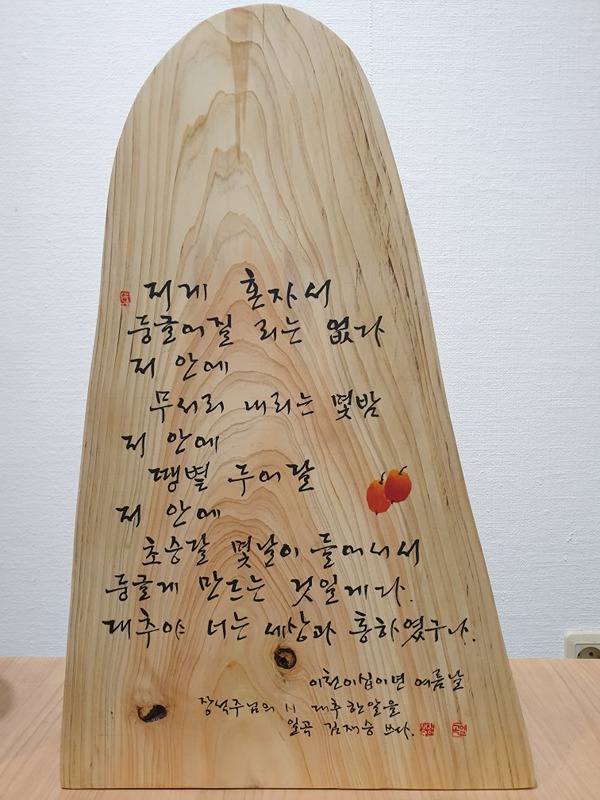 저게 혼자서
둥글어질 리는 없다
저 안에
무서리 내리는 몇밤
저 안에
땡볕 두어달
저 안에
초승달 몇날이 들어서서
둥글게 만드는 것일게다.
대추야 너는 세상과 통하였구나.
이천이십이면 여름날
장석주님의 시 대추 한알을
일곡 김재승 쓰다.